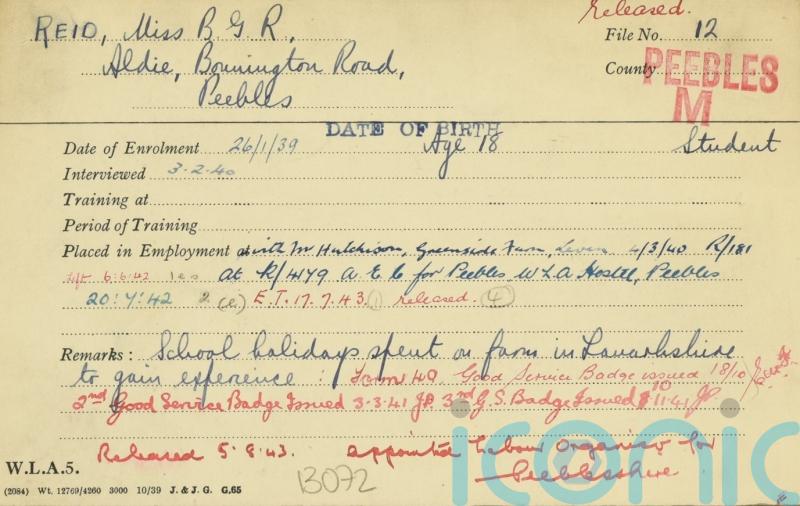 Released.
REID, Miss B G R,
File No. 12
Aldie, Bonnington Road,
County PEEBLES
Peebles
M
DATE OF BIRTH
Date of Enrolment 26/1/39 Age 18 Student
Interviewed 3.2.40
Training at
Period of Training
Placed in Employment at with Mr Hutchison, Greenside Farm, Leven 4/3/40 R/181
Left 6:6:42 1 e s at R/4179 A.E.C for Peebles WLA Hostel, Peebles
20:7:42 2 (e.) E.T. 17.7.43. 1 released. 4
Remarks: School holidays spent on farm in Lanarkshire
to gain experience : Form 49. Good Service Badge issued 18/10/
2nd Good Service Badge Issued 3-3-41 JP. 3rd G.S. Badge Issued 10.11.41 JP.
Released 5.8.43. appointed Labour Organiser for
Peeblesshire
W.L.A.5.
(2084) Wt. 12769/4260 3000 10/39 J. & J. G. G.65
13072
iconic